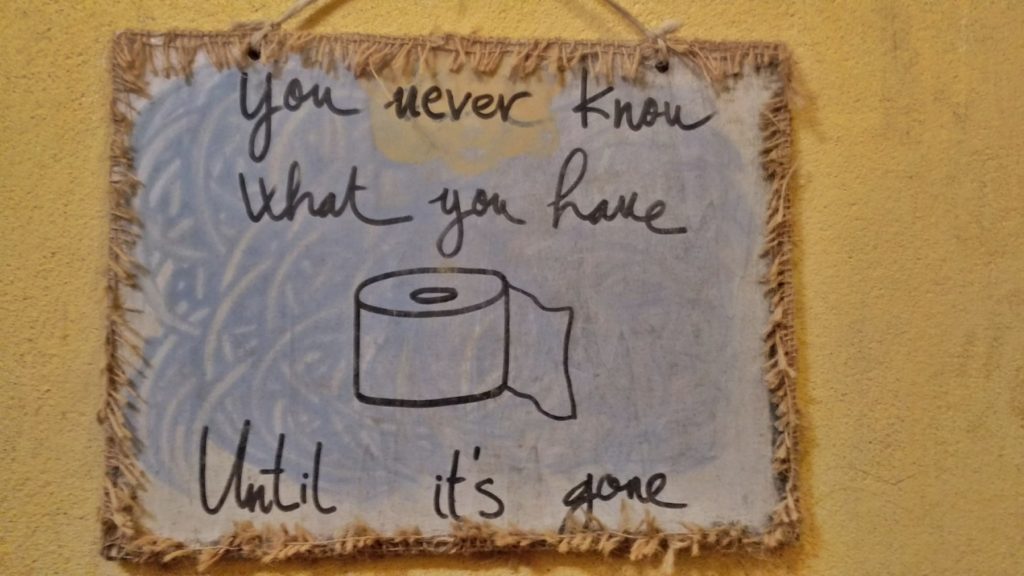 You never know
What you have
Until it's gone